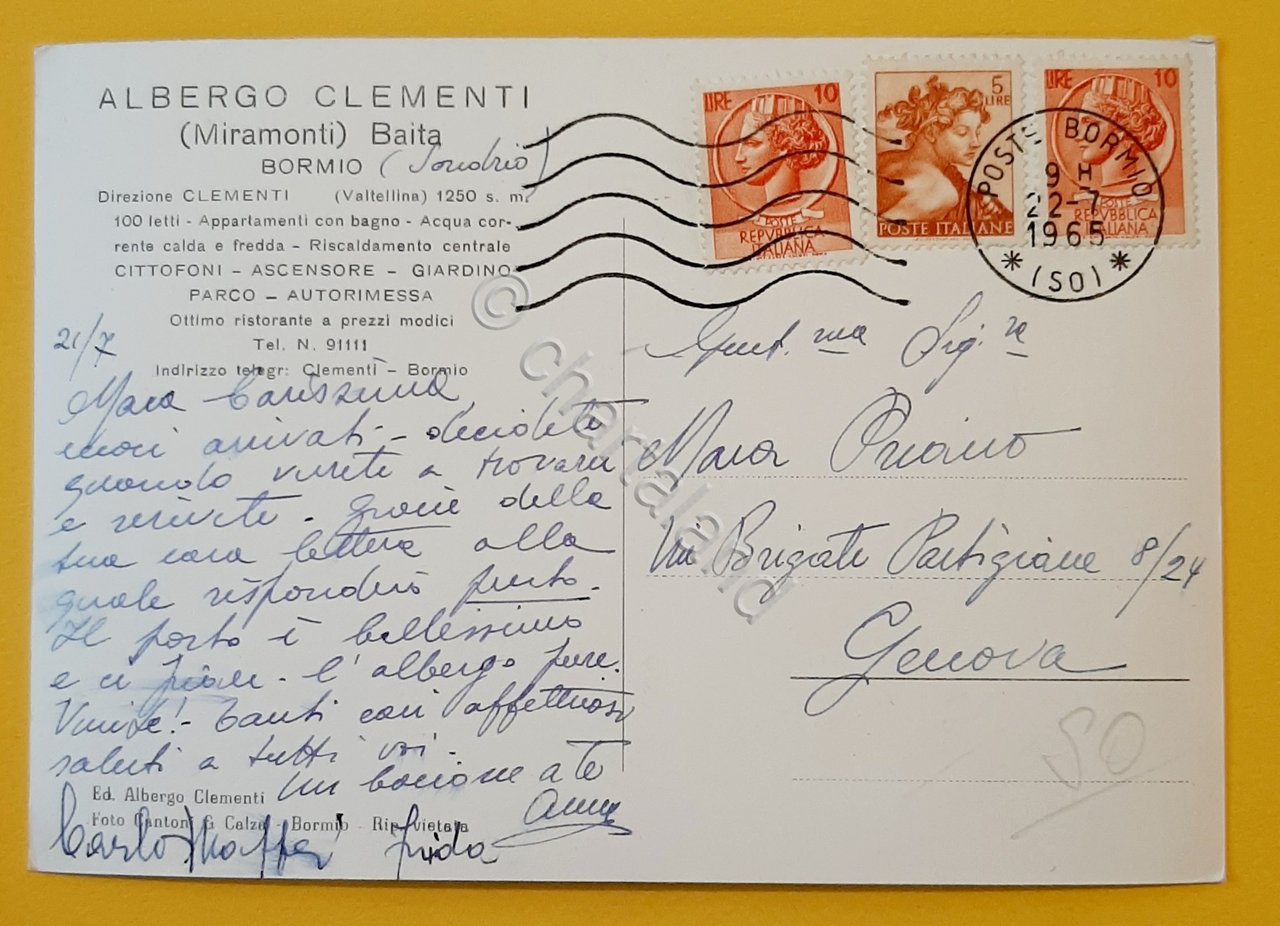 ALBERGO CLEMENTI
(Miramonti) Baita
BORMIO (Sondrio)
Direzione CLEMENTI (Valtellina) 1250 s. m.
100 letti - Appartamenti con bagno - Acqua cor-
rente calda e fredda - Riscaldamento centrale
CITTOFONI - ASCENSORE - GIARDINO
PARCO - AUTORIMESSA
Ottimo ristorante a prezzi modici
Tel. N. 91111
Indirizzo telegr: Clementi - Bormio
21/7
Mara Carissima,
arrivati - decidete
quando verrete a trovarci
e scrivete. Grazie della
tua cara lettera alla
quale risponderò presto.
Il posto è bellissimo
e ci piace. l'albergo pure.
Venite! - Tanti cari affettuosi
saluti a tutti voi -
un bacione a te
Anna
Carlo Frida
Ed. Albergo Clementi
Foto Cantoni & Calza Bormio - Rip. vietata
LIRE 10
POSTE
REPVBBLICA
ITALIANA
5
LIRE
POSTE ITALIANE
LIRE 10
POSTE
REPVBBLICA
ITALIANA
POSTE BORMIO
9 H
22-7
1965
* (SO) *
Gent.ma Sig.ra
Mara Priano
Via Brigate Partigiane 8/24
Genova
50
© chartaland